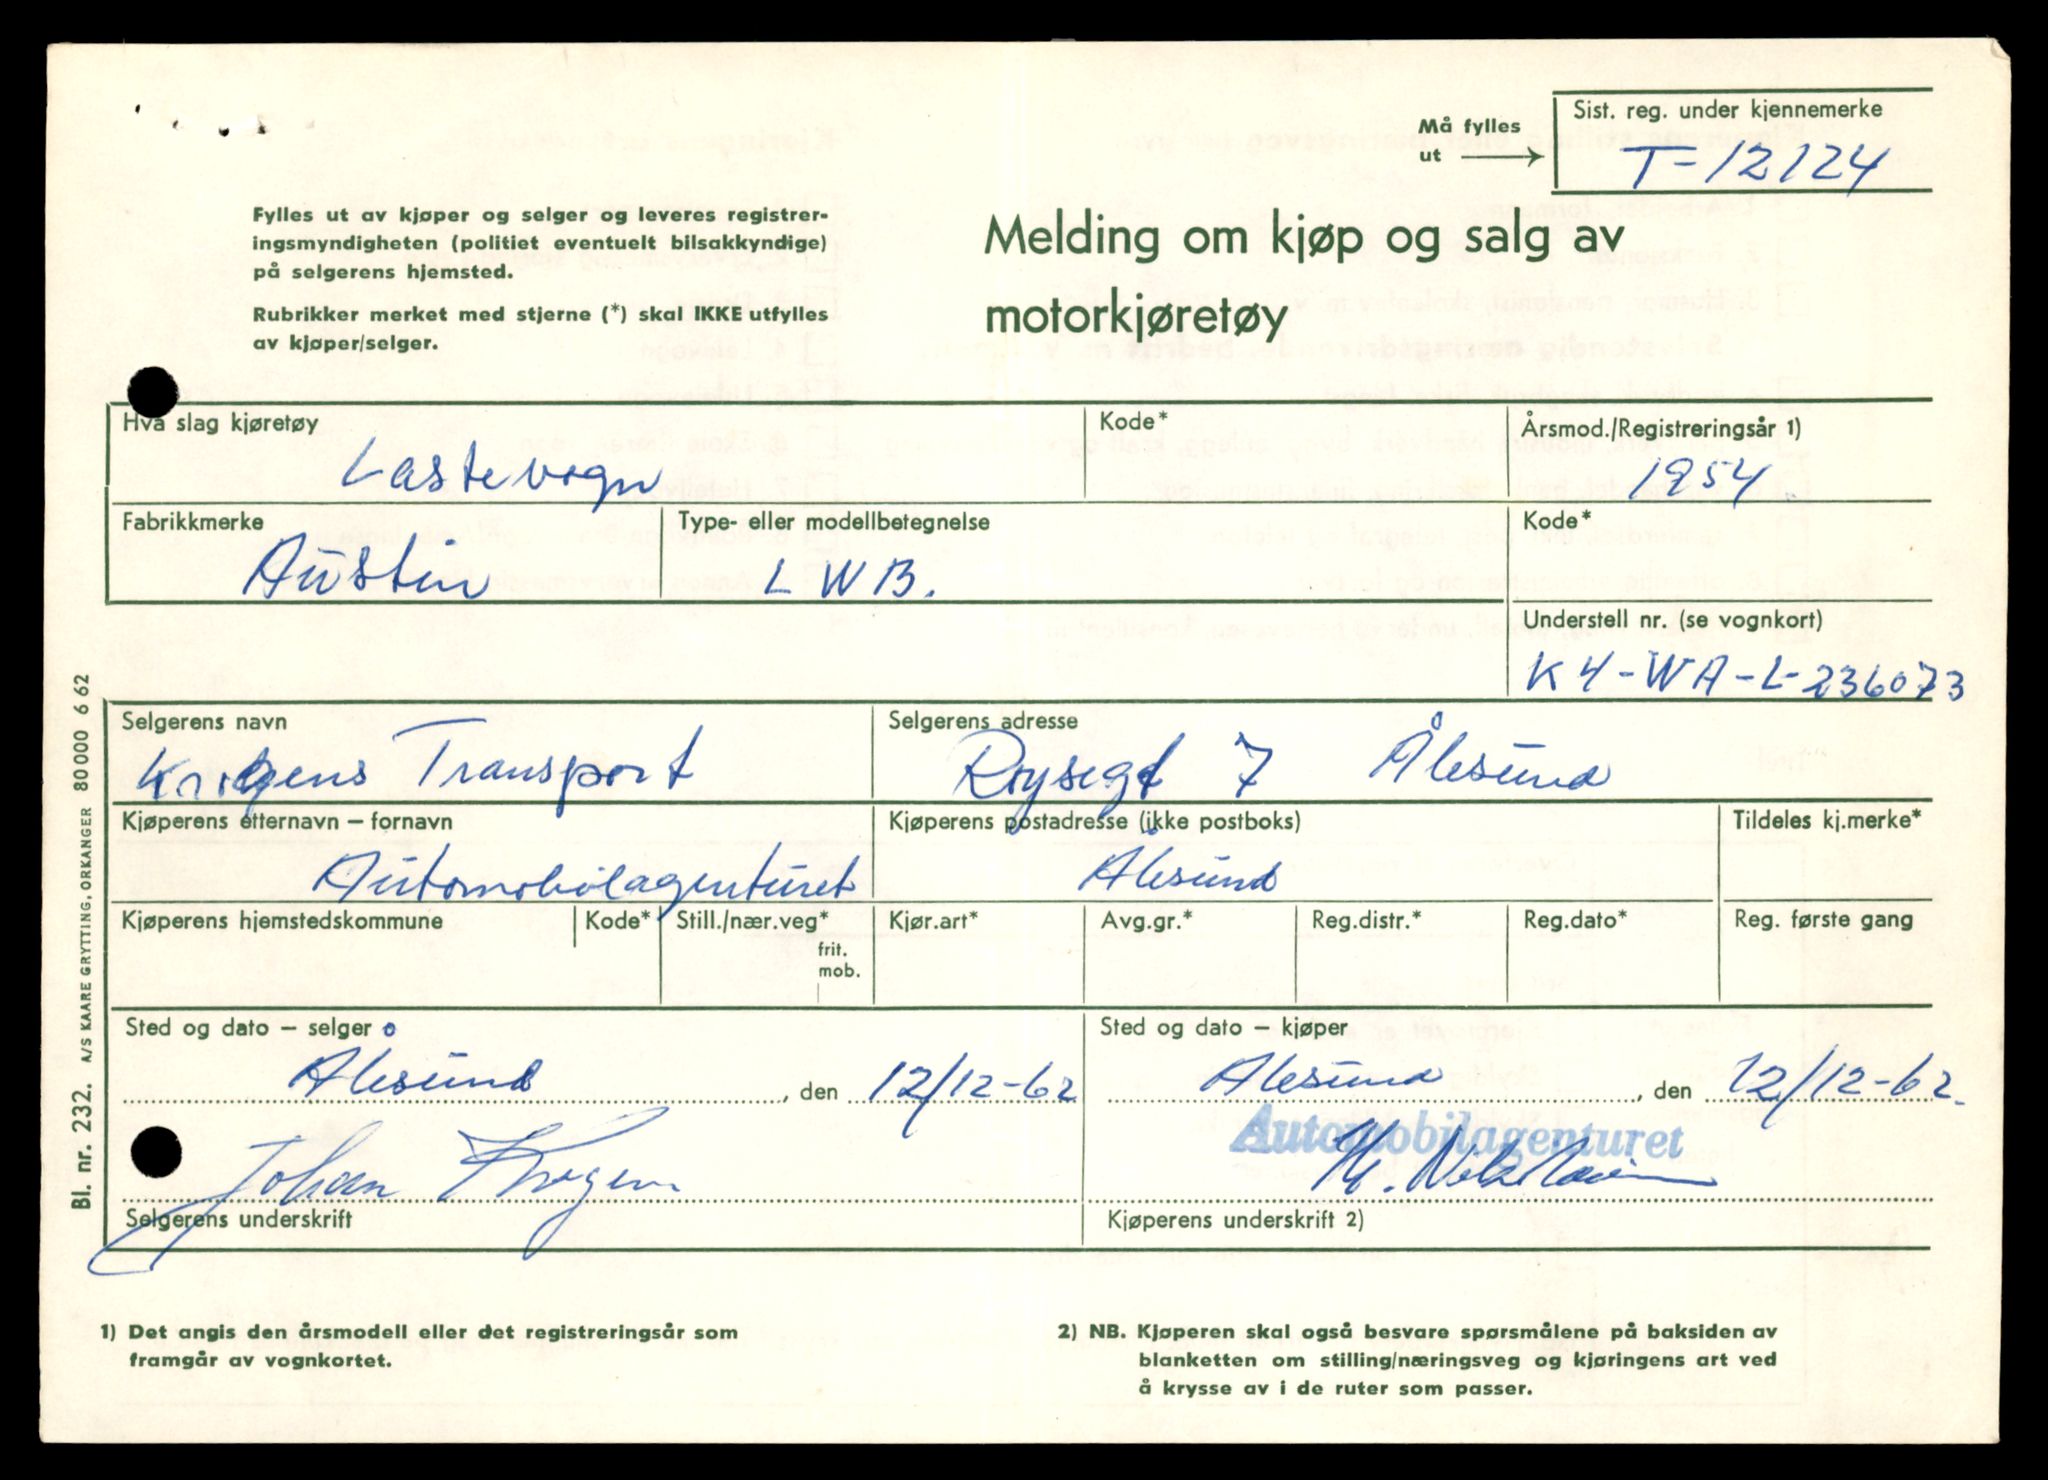 Må fylles
ut
Sist. reg. under kjennemerke
T-12124
Fylles ut av kjøper og selger og leveres registrer-
ingsmyndigheten (politiet eventuelt bilsakkyndige)
på selgerens hjemsted.
Rubrikker merket med stjerne (*) skal IKKE utfylles
av kjøper/selger.
Melding om kjøp og salg av
motorkjøretøy
Hva slag kjøretøy
Lastevogn
Kode*
Årsmod./Registreringsår 1)
1954.
Fabrikkmerke
Austin
Type- eller modellbetegnelse
LWB.
Kode*
Understell nr. (se vognkort)
K4-WA-L-236073
Selgerens navn
Transport
Selgerens adresse
Røysegt 7 Ålesund
Kjøperens etternavn – fornavn
Automobilagenturet
Kjøperens postadresse (ikke postboks)
Ålesund
Tildeles kj.merke*
Kjøperens hjemstedskommune
Kode*
Still./nær.veg*
frit.
mob.
Kjør.art*
Avg.gr.*
Reg.distr.*
Reg.dato*
Reg. første gang
Sted og dato – selger
Ålesund, den 12/12-62
Sted og dato – kjøper
Ålesund, den 12/12-62.
Johan
Selgerens underskrift
Automobilagenturet
Kjøperens underskrift 2)
1) Det angis den årsmodell eller det registreringsår som
framgår av vognkortet.
2) NB. Kjøperen skal også besvare spørsmålene på baksiden av
blanketten om stilling/næringsveg og kjøringens art ved
å krysse av i de ruter som passer.
Bl. nr. 232. A/S KAARE GRYTTING, ORKANGER 80000 6 62